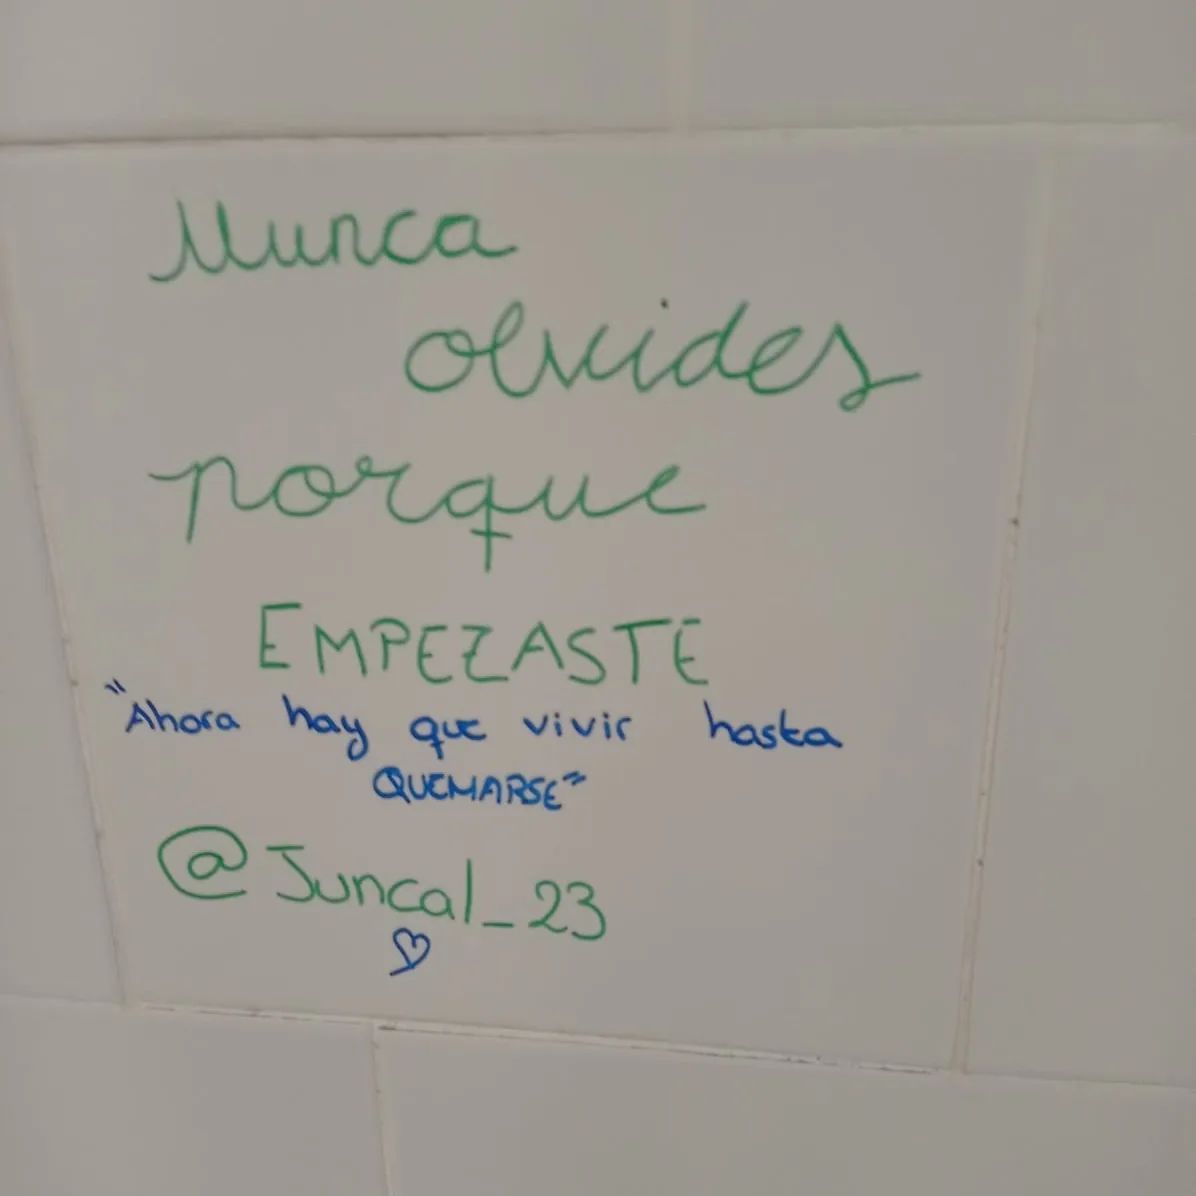 Nunca
olvides
porque
EMPEZASTE
"Ahora hay que vivir hasta
QUEMARSE"
@Juncal_23